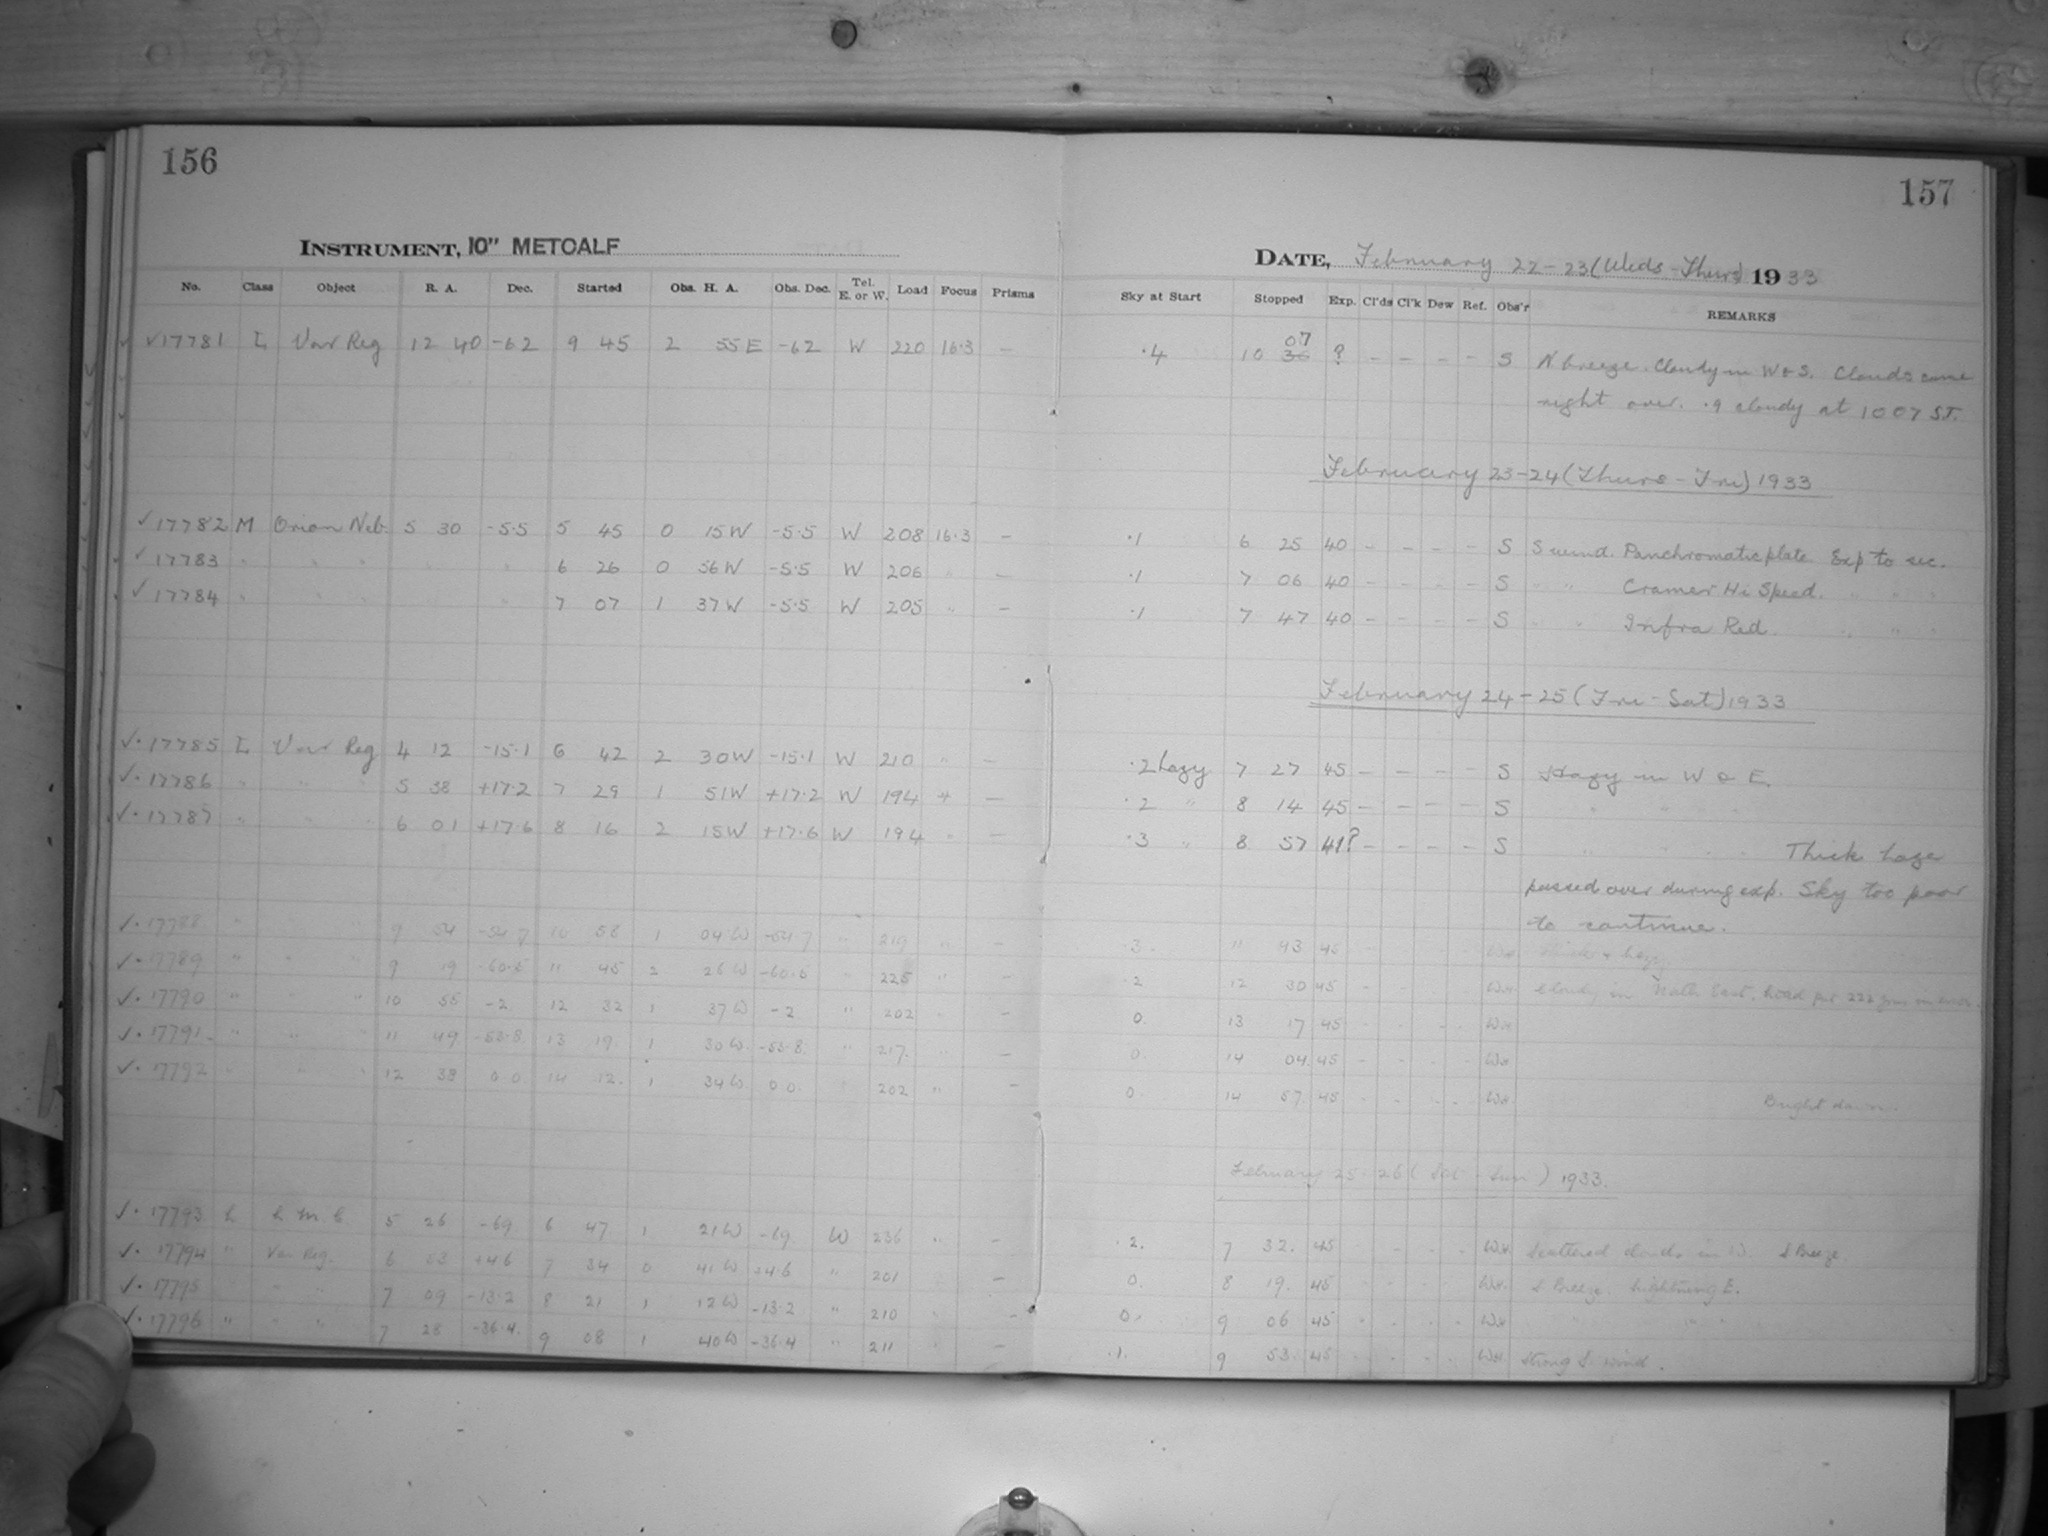 156
157
INSTRUMENT, 10" METCALF
DATE, February 22-23 (Weds-Thurs) 1933
No. Class Object R. A. Dec. Started Obs. H. A. Obs. Dec. Tel. E. or W. Load Focus Prisms Sky at Start Stopped Exp. Cl'ds Cl'k Dew Ref. Obs'r REMARKS
✓17781 L Var Reg 12 40 -62 9 45 2 55 E -62 W 220 16.3 — .4 10 07 ? - - - - S N breeze. Cloudy in W & S. Clouds came
right over. .9 cloudy at 10 07 ST.
February 23-24 (Thurs-Fri) 1933
✓17782 M Orion Neb. 5 30 -5.5 5 45 0 15 W -5.5 W 208 16.3 — .1 6 25 40 - - - - S S wind. Panchromatic plate Exp to sec.
✓17783 " " " " " 6 26 0 56 W -5.5 W 206 " — .1 7 06 40 - - - - S " " Cramer Hi Speed. " " "
✓17784 " " " " 7 07 1 37 W -5.5 W 205 " — .1 7 47 40 - - - - S " " Infra Red. " " "
February 24-25 (Fri-Sat) 1933
✓. 17785 L Var Reg 4 12 -15.1 6 42 2 30 W -15.1 W 210 " — .2 hazy 7 27 45 - - - - S Hazy in W & E.
✓. 17786 " " " 5 38 +17.2 7 29 1 51 W +17.2 W 194 + — .2 " 8 14 45 - - - - S " " " "
✓. 17787 " " " 6 01 +17.6 8 16 2 15 W +17.6 W 194 " — .3 " 8 57 41? - - - - S " " " " Thick haze
passed over during exp. Sky too poor
to continue.
✓. 17788 " " " 9 54 -54.7 10 58 1 04 W -54.7 " 219 " - .3 11 43 45 - WH
✓. 17789 " " " 9 19 -60.5 11 45 2 26 W -60.5 " 225 " - .2 12 30 45 - - WH Cloudy in North East. Load
✓. 17790 " " " 10 55 -2 12 32 1 37 W -2 " 202 - - 0. 13 17 45 - - - - WH
✓. 17791 " " " 11 49 -53.8 13 19 1 30 W. -53.8 " 217. " - 0. 14 04 45 - - - - WH
✓. 17792 " " " 12 38 0 0 14 12. 1 34 W 0 0 202 " - 0 14 57 45 - - - - WH Bright dawn.
February 25-26 (Sat - Sun) 1933.
✓. 17793 L L M C. 5 26 -69 6 47 1 21 W -69 W 236 " - .2. 7 32. 45 - - - - WH Scattered clouds in W. S Breeze.
✓. 17794 " Var Reg. 6 53 +4.6 7 34 0 41 W +4.6 " 201 - 0. 8 19. 45 - - - - WH S Breeze. Lightning E.
✓. 17795 " " 7 09 -13.2 8 21 1 12 W -13.2 " 210 - 0. 9 06 45 - - - - WH " "
✓. 17796 " " " 7 28 -36.4. 9 08 1 40 W -36.4 " 211 - .1. 9 53. 45 - - - - WH Strong S. wind.